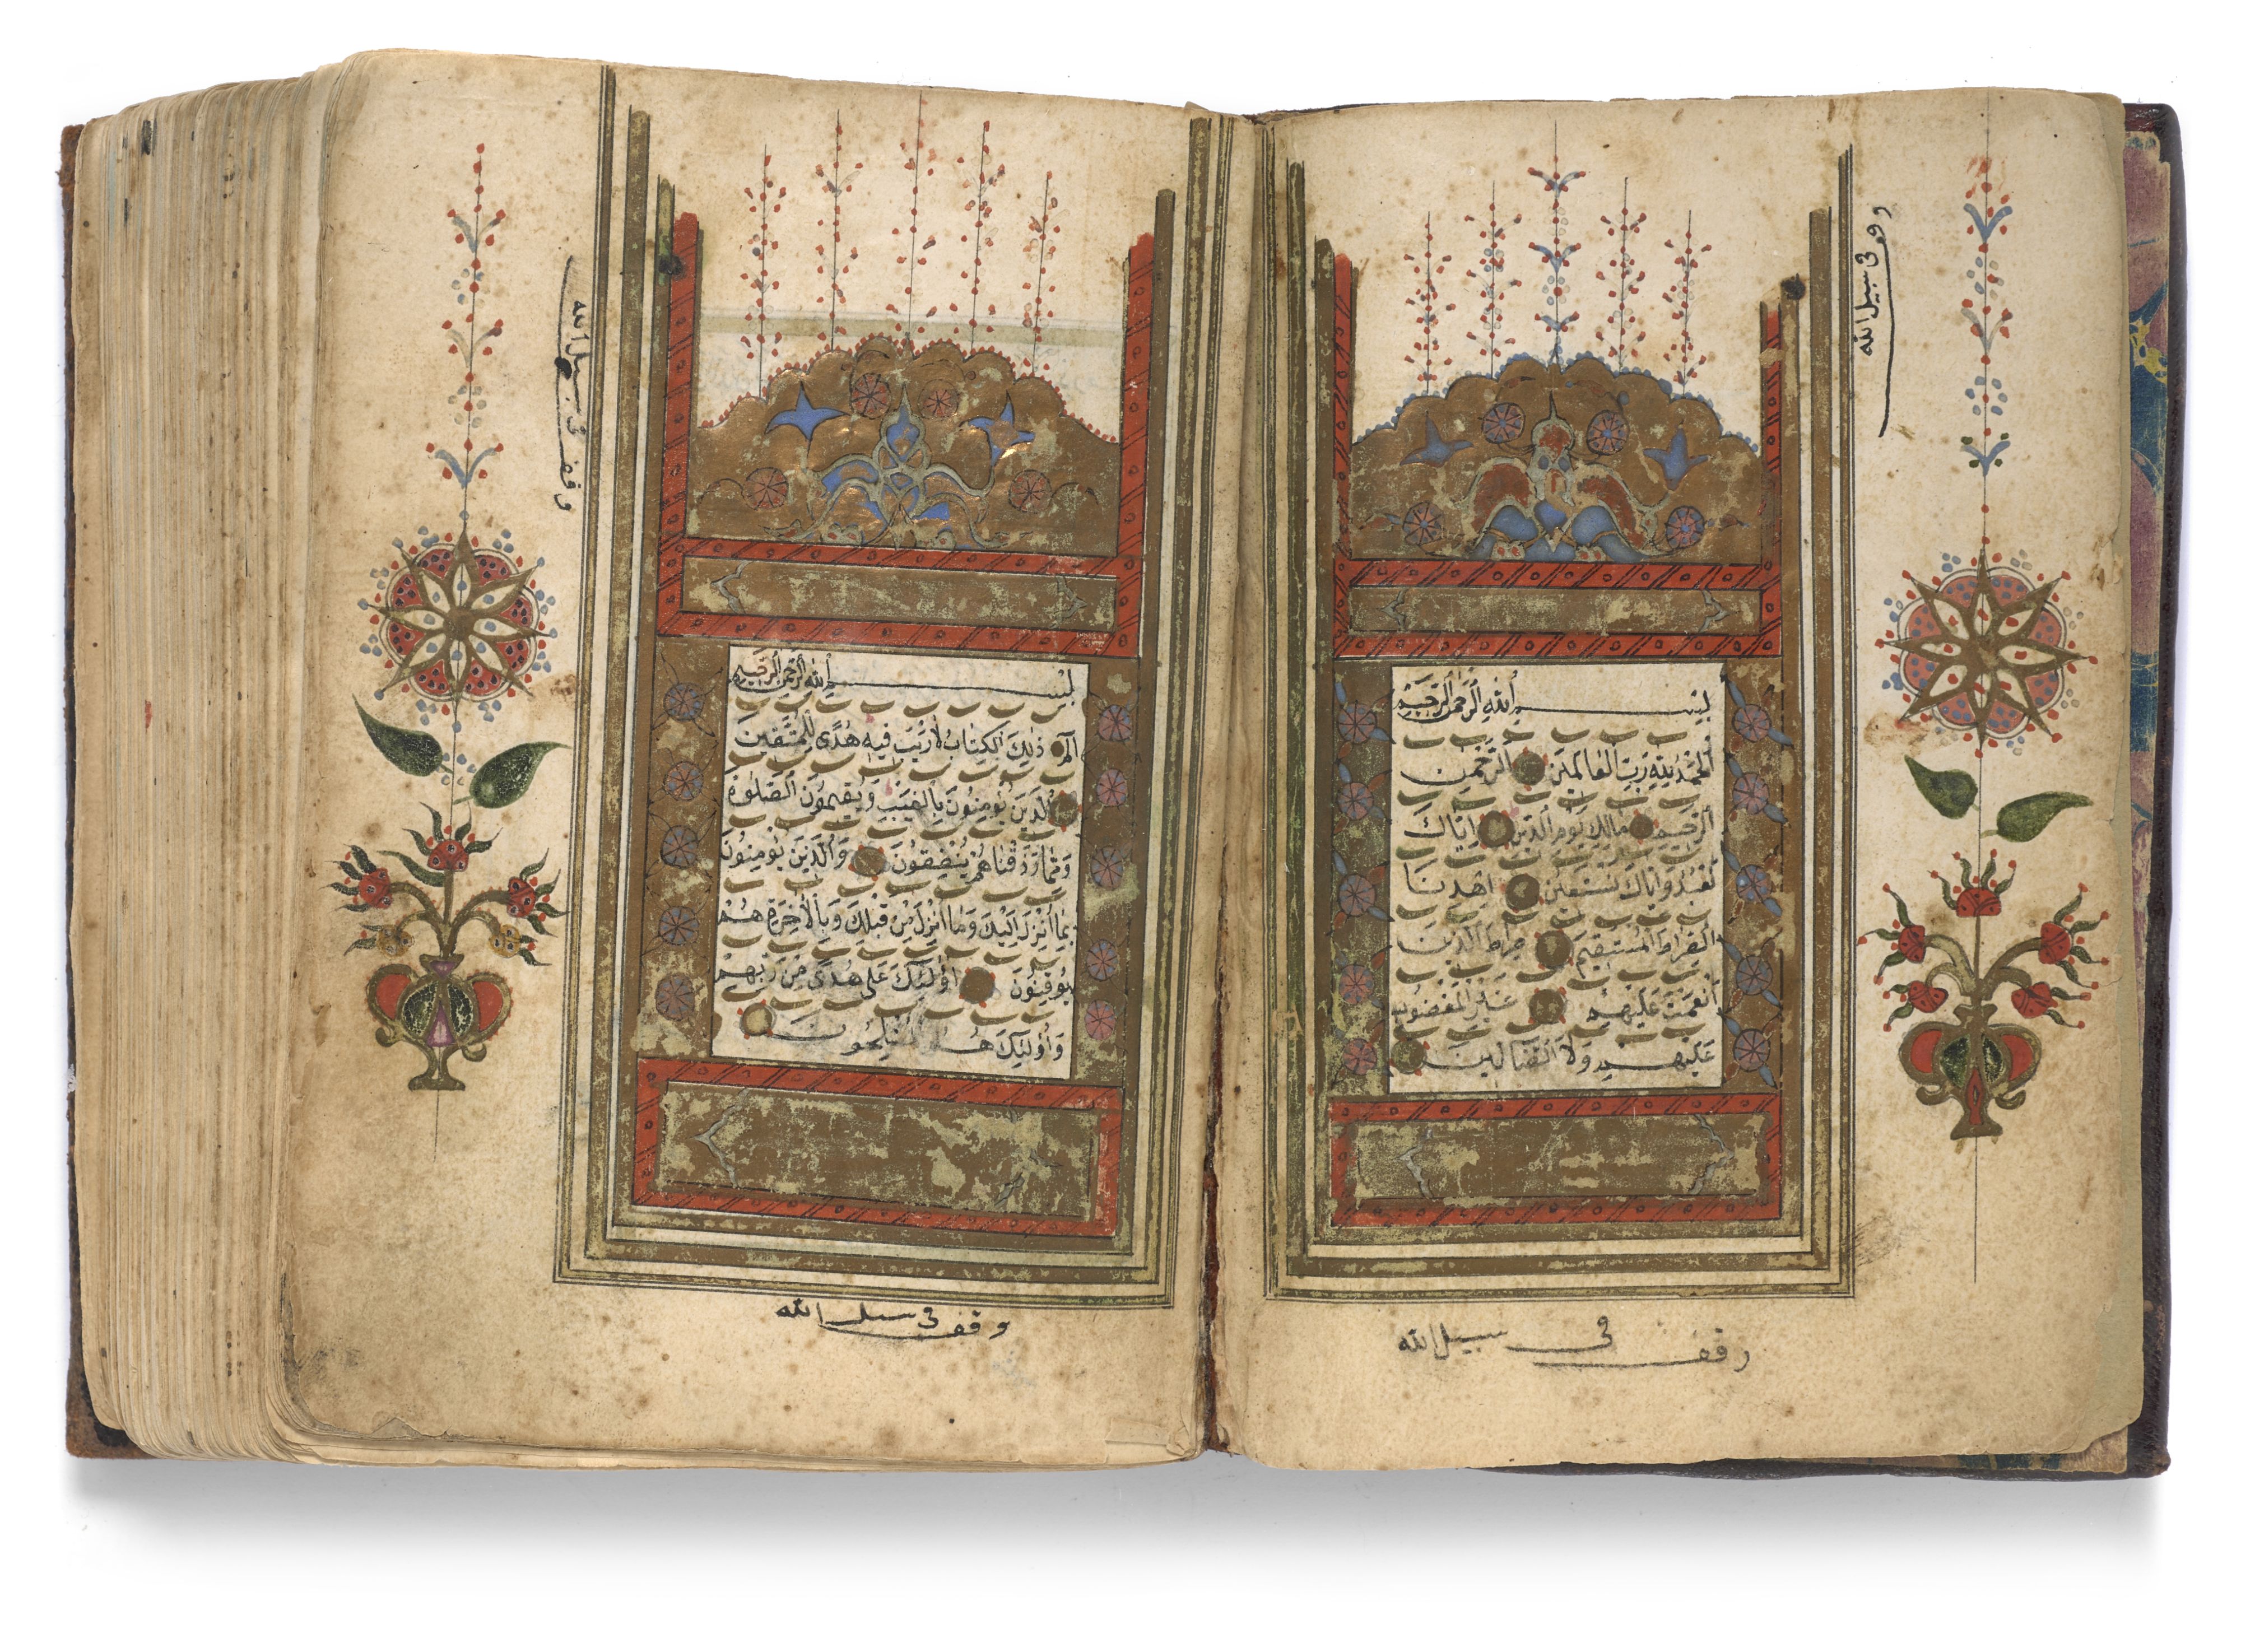 بِسْمِ اللهِ الرَّحْمٰنِ الرَّحِيمِ
اَلْحَمْدُ لِلّٰهِ رَبِّ الْعَالَمِينَ الرَّحْمٰنِ
الرَّحِيمِ مَالِكِ يَوْمِ الدِّينِ اِيَّاكَ
نَعْبُدُ وَاِيَّاكَ نَسْتَعِينُ اِهْدِنَا
الصِّرَاطَ الْمُسْتَقِيمَ صِرَاطَ الَّذِينَ
اَنْعَمْتَ عَلَيْهِمْ غَيْرِ الْمَغْضُوبِ
عَلَيْهِمْ وَلَا الضَّالِّينَ
وقف في سبيل الله
وقف في سبيل الله
بِسْمِ اللهِ الرَّحْمٰنِ الرَّحِيمِ
الٓمٓ ذٰلِكَ الْكِتَابُ لَا رَيْبَ فِيهِ هُدًى لِلْمُتَّقِينَ
اَلَّذِينَ يُؤْمِنُونَ بِالْغَيْبِ وَيُقِيمُونَ الصَّلٰوةَ
وَمِمَّا رَزَقْنَاهُمْ يُنْفِقُونَ وَالَّذِينَ يُؤْمِنُونَ
بِمَا اُنْزِلَ اِلَيْكَ وَمَا اُنْزِلَ مِنْ قَبْلِكَ وَبِالْاٰخِرَةِ هُمْ
يُوقِنُونَ اُولٰئِكَ عَلٰى هُدًى مِنْ رَبِّهِمْ
وَاُولٰئِكَ هُمُ الْمُفْلِحُونَ
وقف في سبيل الله
وقف في سبيل الله